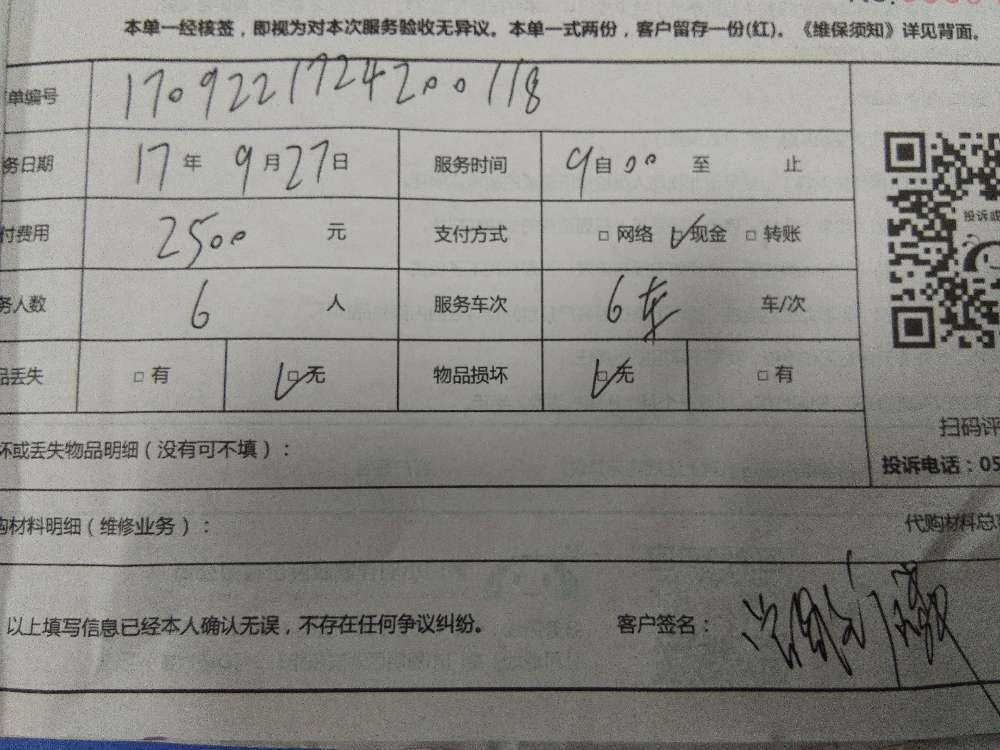 本单一经核签，即视为对本次服务验收无异议。本单一式两份，客户留存一份(红)。《维保须知》详见背面。
单编号 170922172420​0118
务日期 17 年 9 月 27 日 服务时间 9 自 00 至 止
付费用 2500 元 支付方式 □ 网络 □ 现金 □ 转账
投诉或
务人数 6 人 服务车次 6车 车/次
品丢失 □ 有 □ 无 物品损坏 □ 无 □ 有
扫码评
坏或丢失物品明细（没有可不填）：
投诉电话：05
购材料明细（维修业务）：
代购材料总
以上填写信息已经本人确认无误，不存在任何争议纠纷。 客户签名：